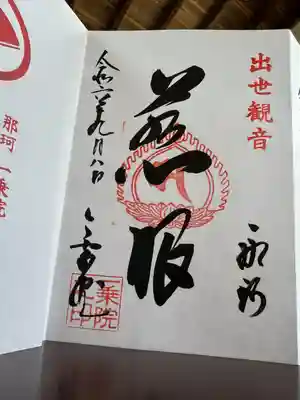 出世観音
慈眼
令和六年九月八日
一乗院
一乗院之印
那珂 一乗院